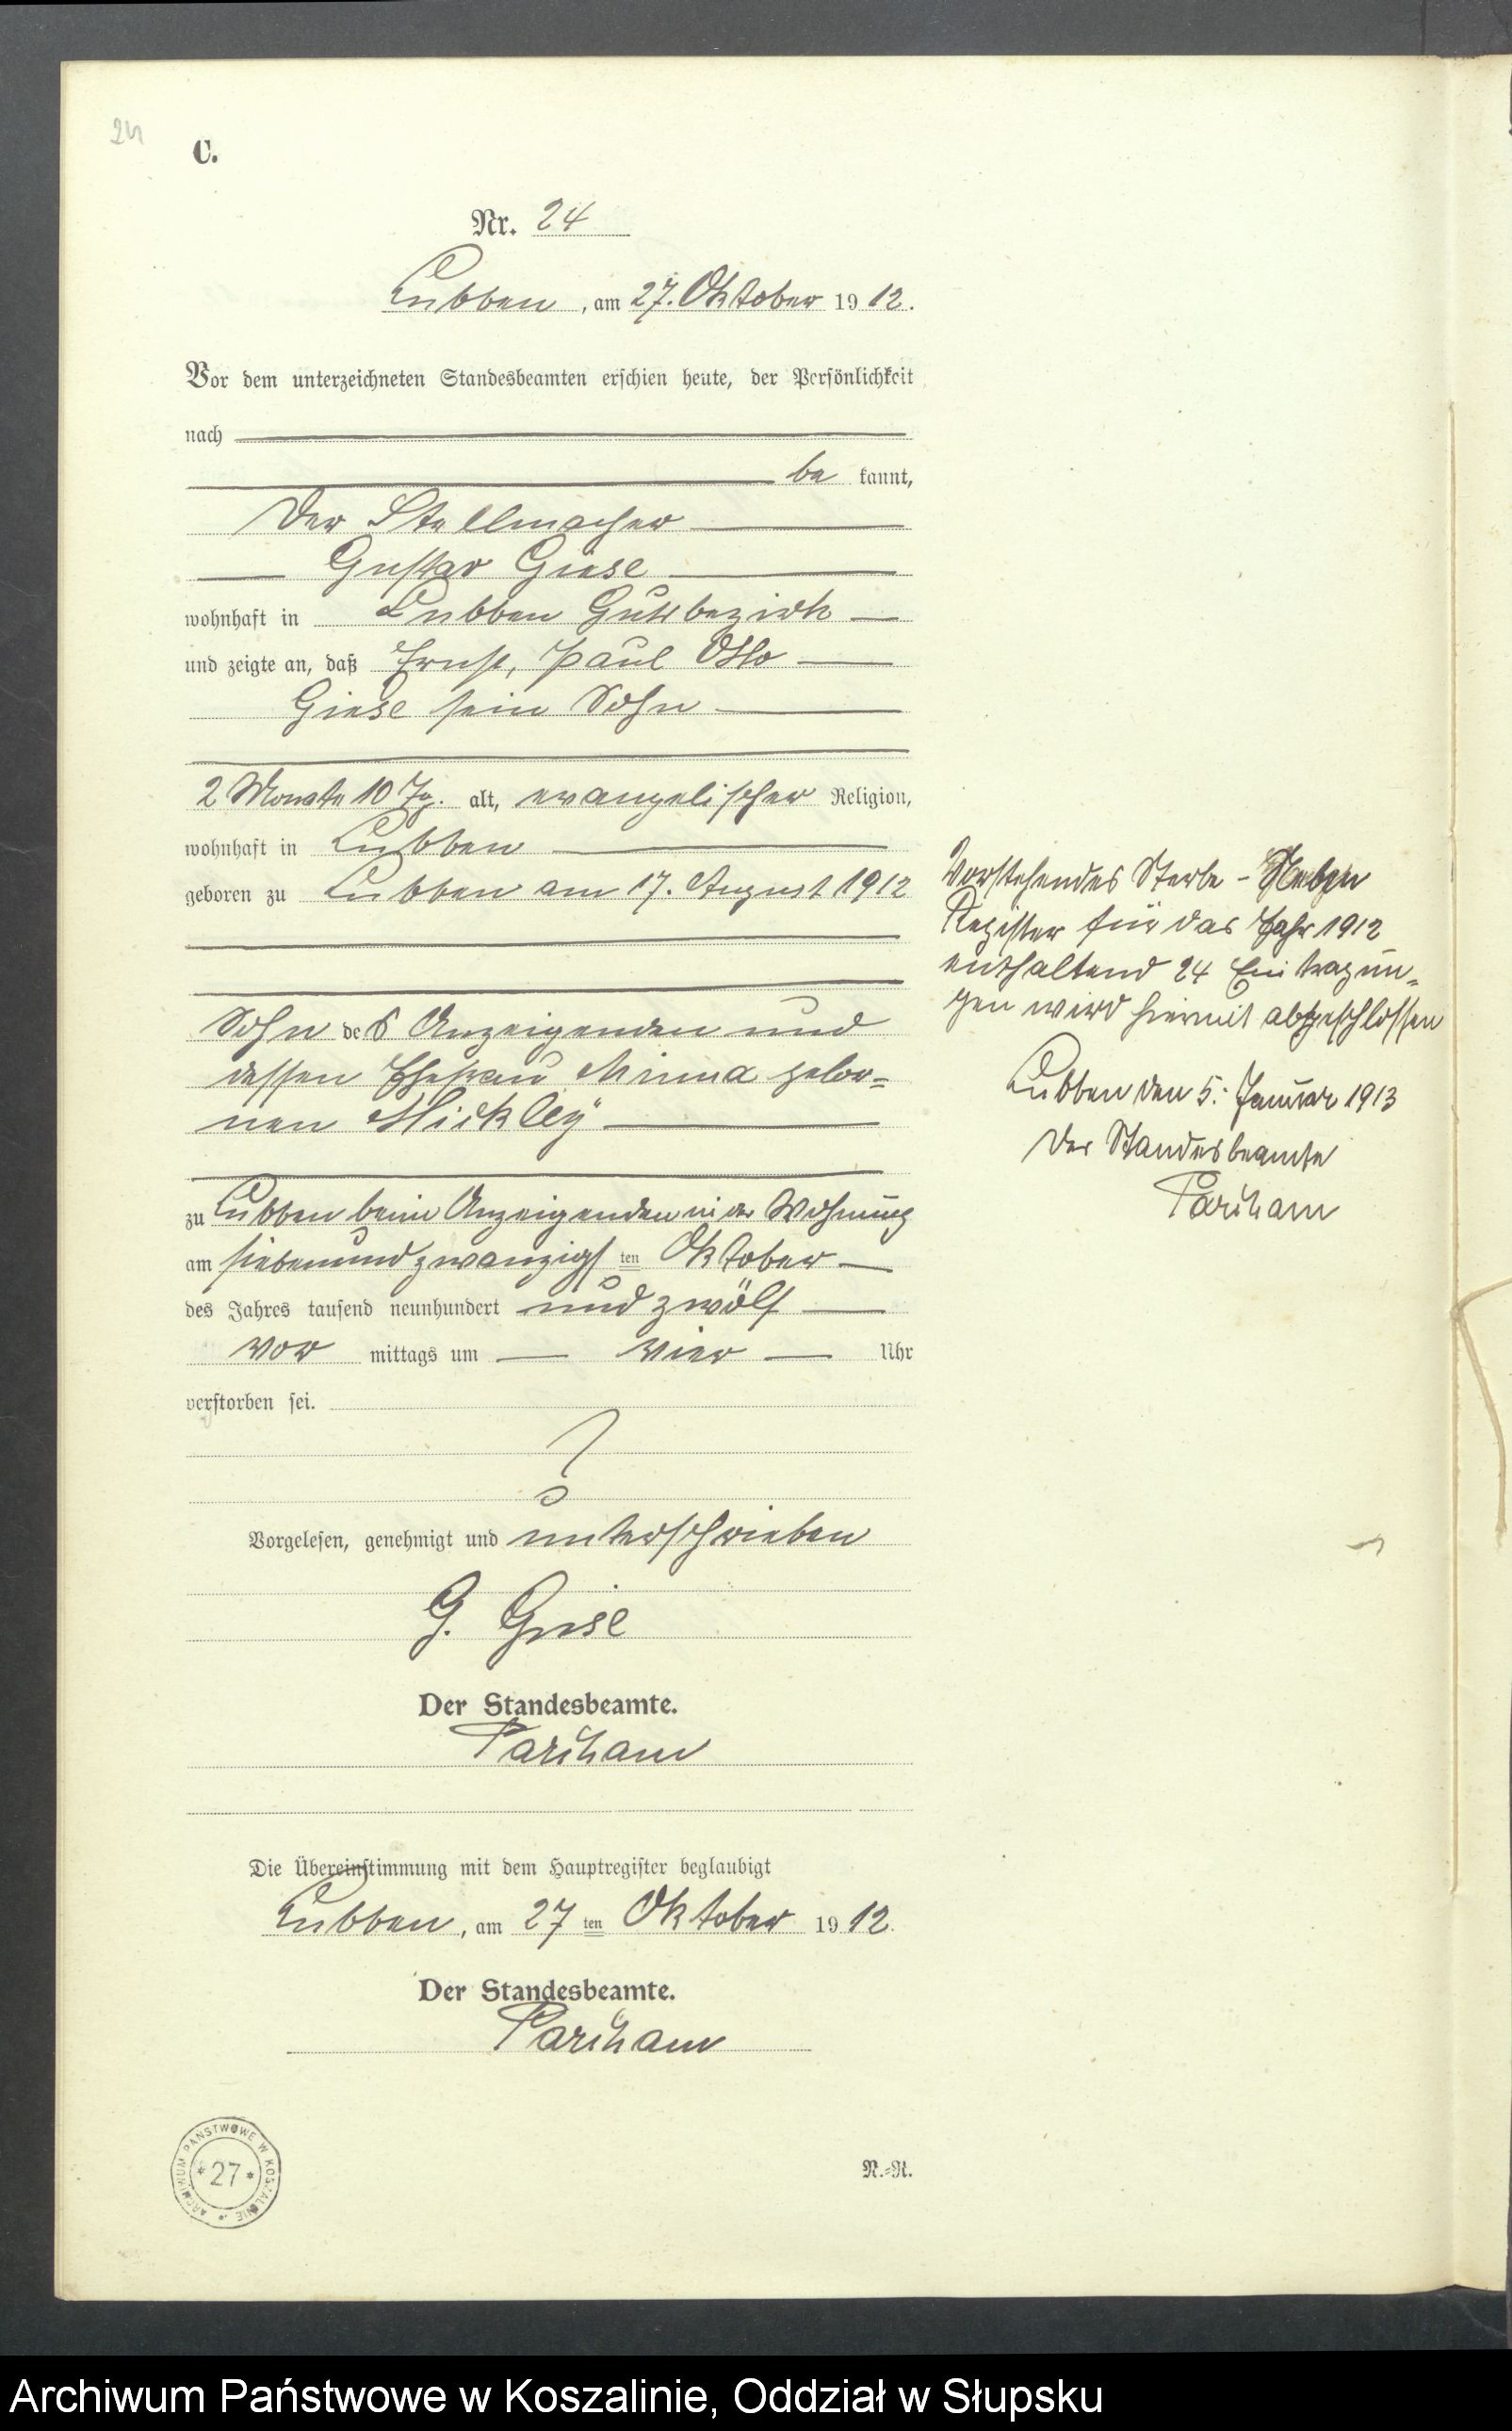 24
C.
Nr. 24
Lubben, am 27. Oktober 1912.
Vor dem unterzeichneten Standesbeamten erschien heute, der Persönlichkeit
nach
be kannt,
der Stellmacher
Gustav Giese
wohnhaft in Lubben Gutsbezirk
und zeigte an, daß Ernst, Paul Otto
Giese sein Sohn
2 Monate 10 Tg. alt, evangelischer Religion,
wohnhaft in Lubben
geboren zu Lubben am 17. August 1912
Sohn des Anzeigenden und
dessen Ehefrau Minna gebor=
nen Mickley
zu Lubben beim Anzeigenden in der Wohnung
am siebenundzwanzigsten Oktober
des Jahres tausend neunhundert und zwölf
vor mittags um vier Uhr
verstorben sei.
Vorgelesen, genehmigt und unterschrieben
G. Giese
Der Standesbeamte.
Die Übereinstimmung mit dem Hauptregister beglaubigt
Lubben, am 27 ten Oktober 1912.
Der Standesbeamte.
Vorstehendes Sterbe-Neben
Register für das Jahr 1912
enthaltend 24 Eintragun=
gen wird hiermit abgeschlossen
Lubben den 5. Januar 1913
Der Standesbeamte
ARCHIWUM PAŃSTWOWE W KOSZALINIE
*27*
N.=R.
Archiwum Państwowe w Koszalinie, Oddział w Słupsku